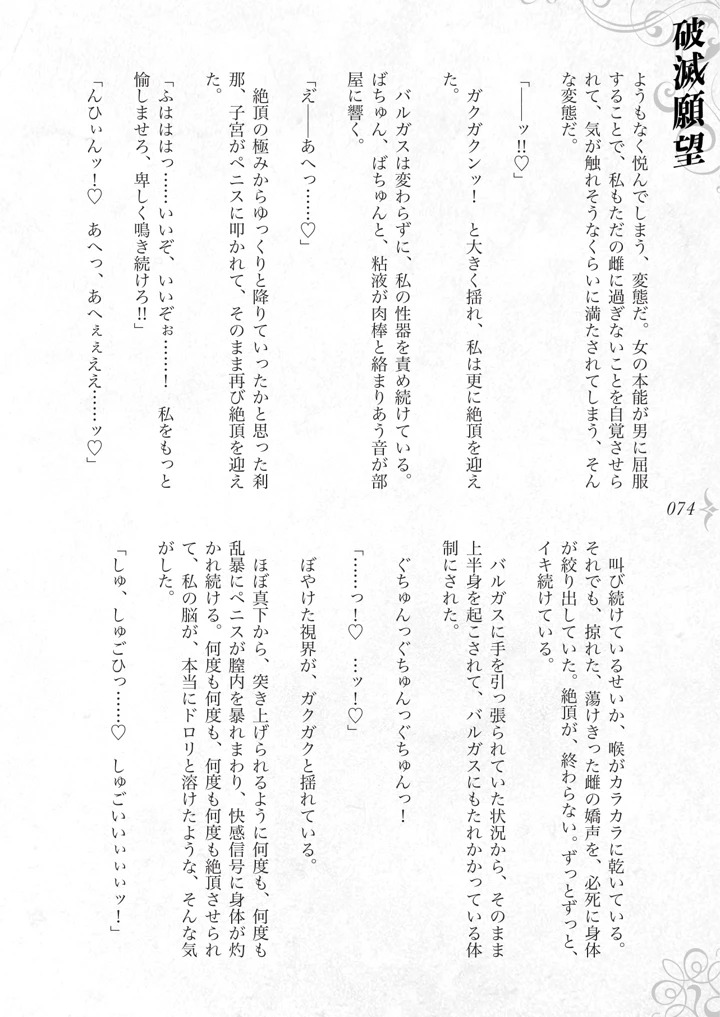 破滅願望
ようもなく悦んでしまう、変態だ。女の本能が男に屈服
することで、私もただの雌に過ぎないことを自覚させら
れて、気が触れそうなくらいに満たされてしまう、そん
な変態だ。
「――ッ!!♡」
ガクガクンッ！　と大きく揺れ、私は更に絶頂を迎え
た。
バルガスは変わらずに、私の性器を責め続けている。
ばちゅん、ばちゅんと、粘液が肉棒と絡まりあう音が部
屋に響く。
「え゛――あへっ……♡」
絶頂の極みからゆっくりと降りていったかと思った刹
那、子宮がペニスに叩かれて、そのまま再び絶頂を迎え
た。
「ふははははっ……いいぞ、いいぞぉ……！　私をもっと
愉しませろ、卑しく鳴き続けろ!!」
「んひぃんッ！♡　あへっ、あへぇぇええ……ッ♡」
074
叫び続けているせいか、喉がカラカラに乾いている。
それでも、掠れた、蕩けきった雌の嬌声を、必死に身体
が絞り出していた。絶頂が、終わらない。ずっとずっと、
イキ続けている。
バルガスに手を引っ張られていた状況から、そのまま
上半身を起こされて、バルガスにもたれかかっている体
制にされた。
ぐちゅんっぐちゅんっぐちゅんっ！
「……っ！♡　…ッ！♡」
ぼやけた視界が、ガクガクと揺れている。
ほぼ真下から、突き上げられるように何度も、何度も
乱暴にペニスが膣内を暴れまわり、快感信号に身体が灼
かれ続ける。何度も何度も、何度も何度も絶頂させられ
て、私の脳が、本当にドロリと溶けたような、そんな気
がした。
「しゅ、しゅごひっ……♡　しゅごいいぃぃぃッ！」